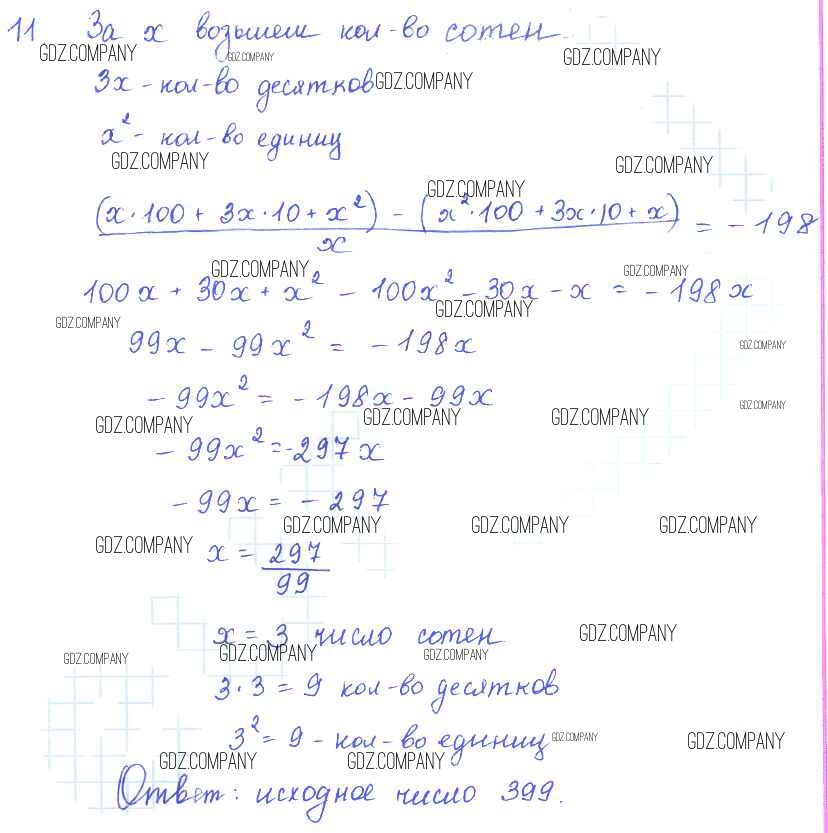 11 За x возьмем кол-во сотен
GDZ.COMPANY GDZ.COMPANY GDZ.COMPANY
3x - кол-во десятков GDZ.COMPANY
x² - кол-во единиц
GDZ.COMPANY GDZ.COMPANY
GDZ.COMPANY
(x·100 + 3x·10 + x²) - (x²·100 + 3x·10 + x) / x = -198
GDZ.COMPANY GDZ.COMPANY
100x + 30x + x² - 100x² - 30x - x = -198x
GDZ.COMPANY
GDZ.COMPANY
99x - 99x² = -198x
GDZ.COMPANY
-99x² = -198x - 99x
GDZ.COMPANY
GDZ.COMPANY GDZ.COMPANY GDZ.COMPANY
-99x² = -297x
-99x = -297
GDZ.COMPANY GDZ.COMPANY GDZ.COMPANY
GDZ.COMPANY
x = 297/99
x = 3 число сотен
GDZ.COMPANY
GDZ.COMPANY GDZ.COMPANY GDZ.COMPANY
3·3 = 9 кол-во десятков
3² = 9 - кол-во единиц GDZ.COMPANY
GDZ.COMPANY
GDZ.COMPANY GDZ.COMPANY
Ответ: исходное число 399.